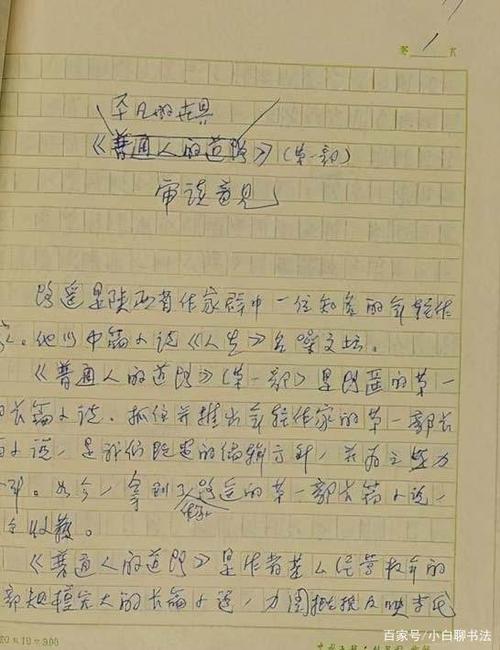 第 1 页
平凡的世界
《普通人的道路》(第一部)
审读意见
路遥是陕西省作家群中一位知名的年轻作
家。他以中篇小说《人生》名噪文坛。
《普通人的道路》(第一部)是路遥的第一
长篇小说。抓住并推出年轻作家的第一部长
小说,是我们既定的编辑方针,并为之努力
。如今,拿到了路遥的第一部长篇小说,
收获。
《普通人的道路》是作者苦心经营数年的
部规模宏大的长篇小说,力图概括反映当代
20×18=300
百家号/小白聊书法